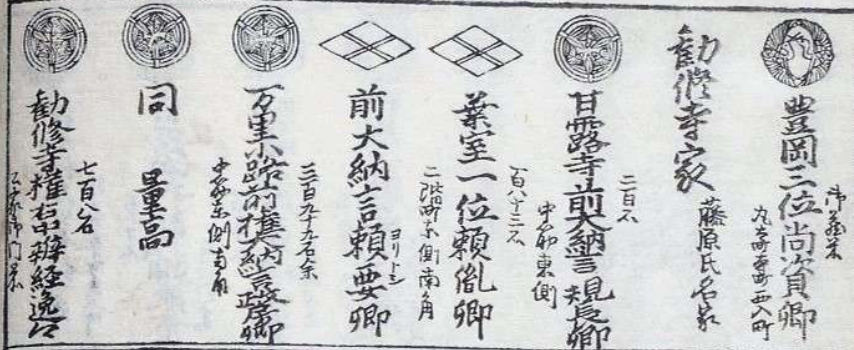 御蔵米
豊岡三位尚資卿
勧修寺家
藤原氏名家
二百石
甘露寺前大納言規長卿
中筋東側
百八十三石
葉室一位頼胤卿
二階町東側南角
前大納言頼要卿
ヨリトシ
三百九十九石余
万里小路前権大納言政房卿
中筋東側南角
同
七百八石
勧修寺権右中辨経逸